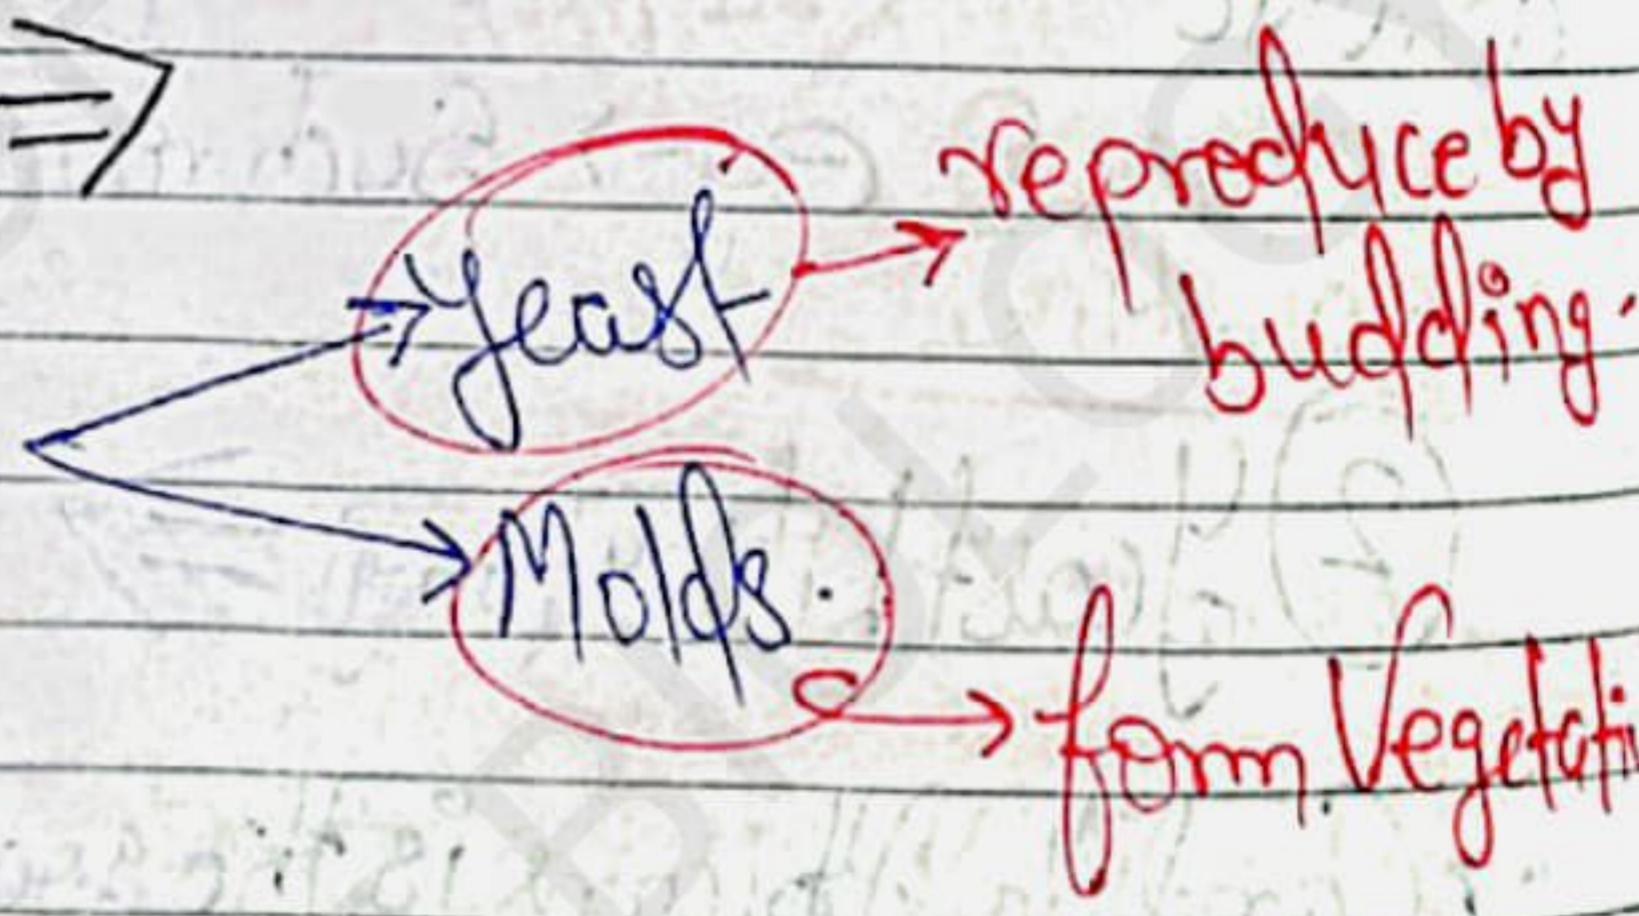 Yeast → reproduce by
budding.
Molds. → form Vegetati